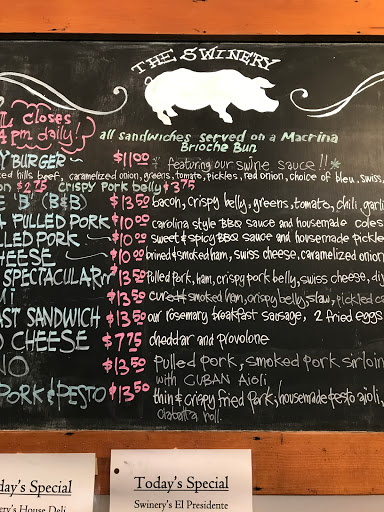 THE SWINERY
closes
4 pm daily!
all sandwiches served on a Macrina
Brioche Bun
Y BURGER ~ $11.00 featuring our swine sauce!!*
hills beef, caramelized onion, greens, tomato, pickles, red onion, choice of bleu, swiss,
on $2.75 crispy pork belly $3.75
E 'B' (B&B) $13.50 bacon, crispy belly, greens, tomato, chili garli
A PULLED PORK $10.00 carolina style BBQ sauce and housemade coles
LLED PORK ~ $10.00 sweet & spicy BBQ sauce and housemade pickle
CHEESE ~ $10.00 brined & smoked ham, swiss cheese, caramelized onion
SPECTACULAR $13.50 Pulled pork, ham, crispy pork belly, swiss cheese, dij
MI $13.50 cured & smoked ham, crispy belly, slaw, pickled ca
AST SANDWICH $13.50 our rosemary breakfast sausage, 2 fried eggs
D CHEESE $7.75 cheddar and provolone
NO $13.50 Pulled pork, smoked pork sirloin
with CUBAN Aioli
PORK & PESTO $13.50 thin & crispy fried Pork, housemade pesto aioli,
ciabatta roll.
day's Special
ery's House Deli
Today's Special
Swinery's El Presidente